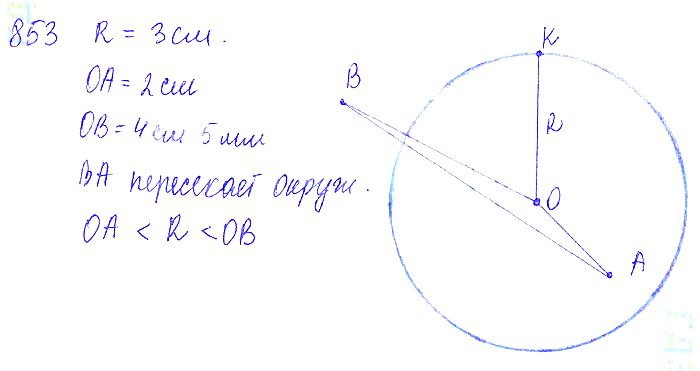 853 R = 3 см.
OA = 2 см
OB = 4 см 5 мм
BA пересекает окруж.
OA < R < OB
K
B
R
O
A